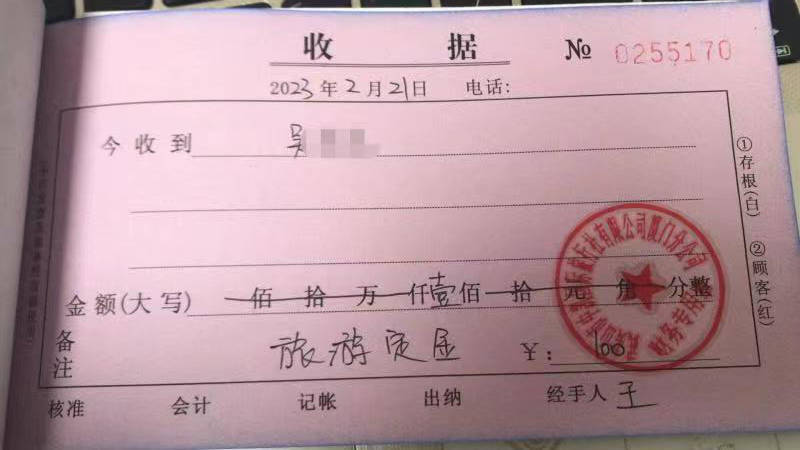 收 据 № 0255170
2023年2月21日 电话:
今收到 吴
金额(大写) 佰 拾 万 仟壹佰 拾 元 角 分整
备注 旅游定金 ¥: 100
核准 会计 记帐 出纳 经手人 王
①存根(白) ②顾客(红)
有限公司厦门分公司
财务专用